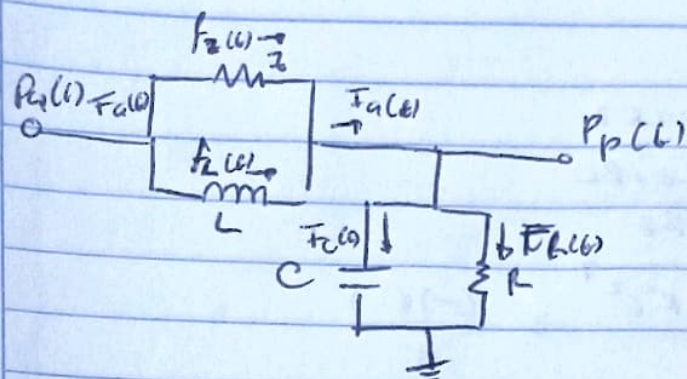 f_z(t) →
z
P_a(t) F_a(t)
F_a(t)
→
P_p(t)
f_L(t) →
L
F_c(t) ↓
↓ F_R(t)
C
R